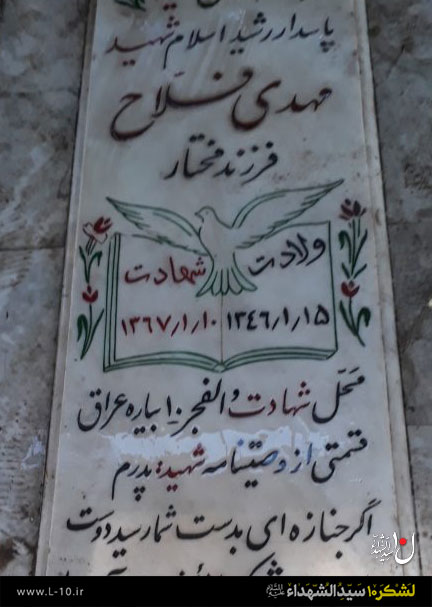 پاسدار رشید اسلام شهید
مهدی فلاح
فرزند مختار
ولادت شهادت
۱۳۴۶/۱/۱۵ ۱۳۶۷/۱/۱۰
محل شهادت والفجر ۱۰ بیاره عراق
قسمتی از وصیتنامه شهید: پدرم
اگر جنازه ای بدست شما رسید دوست
لشکر ۱۰ سیدالشهداء
www.L-10.ir